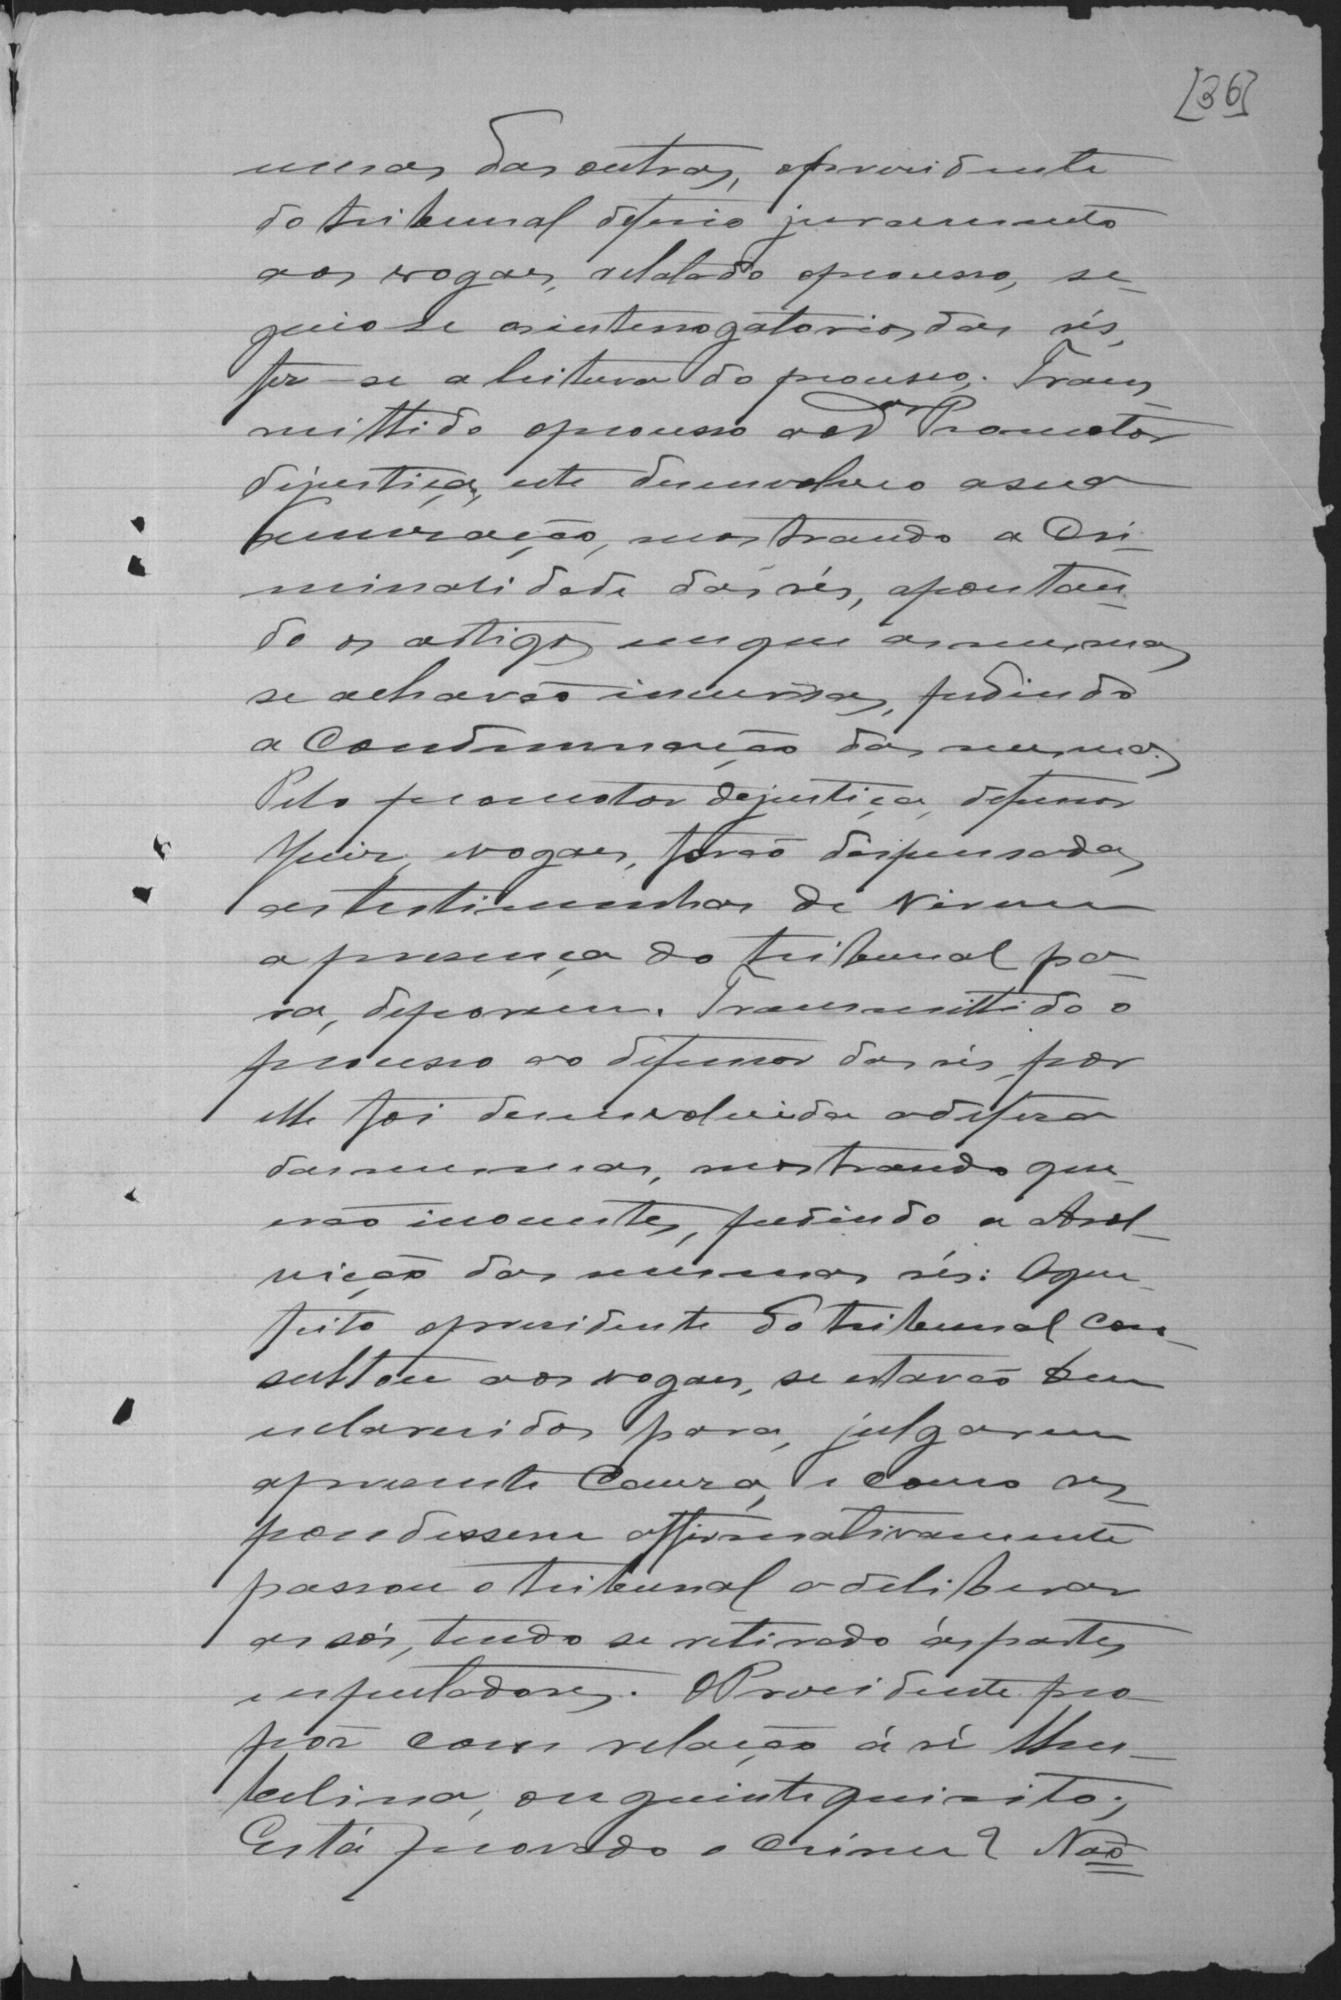 [36]
umas das outras, o prezidente
do tribunal deferio juramento
aos vogaes, relatado o processo, se-
guio se os interrogatorios das rés,
fez-se a leitura do processo. Trans-
mittido o processo ao Dr Promotor
de justiça, este desenvolveo a sua
acuzação, mostrando a Cri-
minalidade das rés, apontan-
do os artigos em que as mesmas
se achavão incursas, pedindo
a Condemnação das mesmas.
Pelo promotor de justiça, defensor
Juiz, vogaes, forão dispensadas
as testimunhas de virem
a presença do tribunal pa-
ra, deporem. Transmittido o
processo ao defensor das rés, por
elle foi desenvolvida a defeza
das mesmas, mostrando que
erão inocentes, pedindo a Absol-
vição das mesmas rés: O que
feito o prezidente do tribunal con-
sultou aos vogaes, se estavão bem
esclarecidos para, julgarem
a prezente Cauza, e como res-
pondessem affirmativamente
passou o tribunal a deliberar
as sós, tendo se retirado ás partes
espectadores. O Prezidente pro-
pôz com relação á ré Um-
belina, os seguinte quizitos;
Está provado o crime? Não